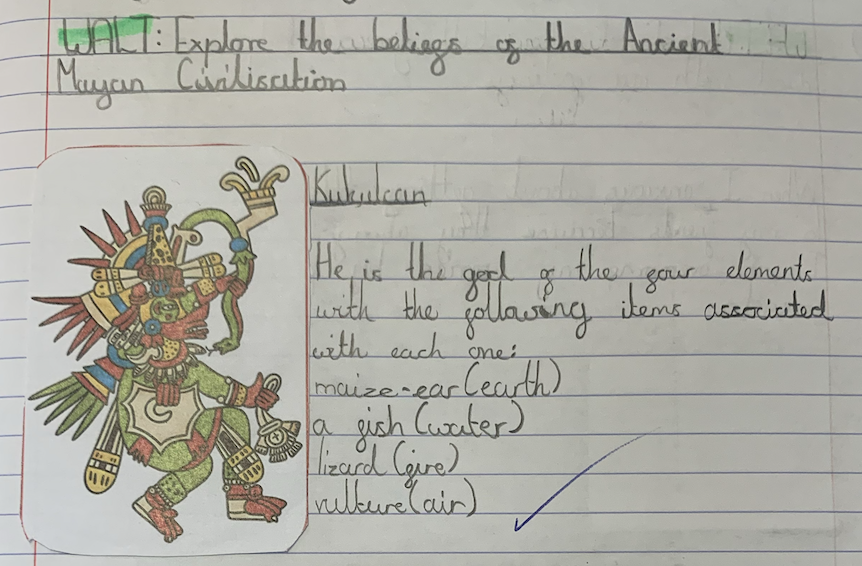 WALT: Explore the beliefs of the Ancient
Mayan Civilisation
Kukulcan
He is the god of the four elements
with the following items associated
with each one:
maize-ear (earth)
a fish (water)
lizard (fire)
vulture (air)